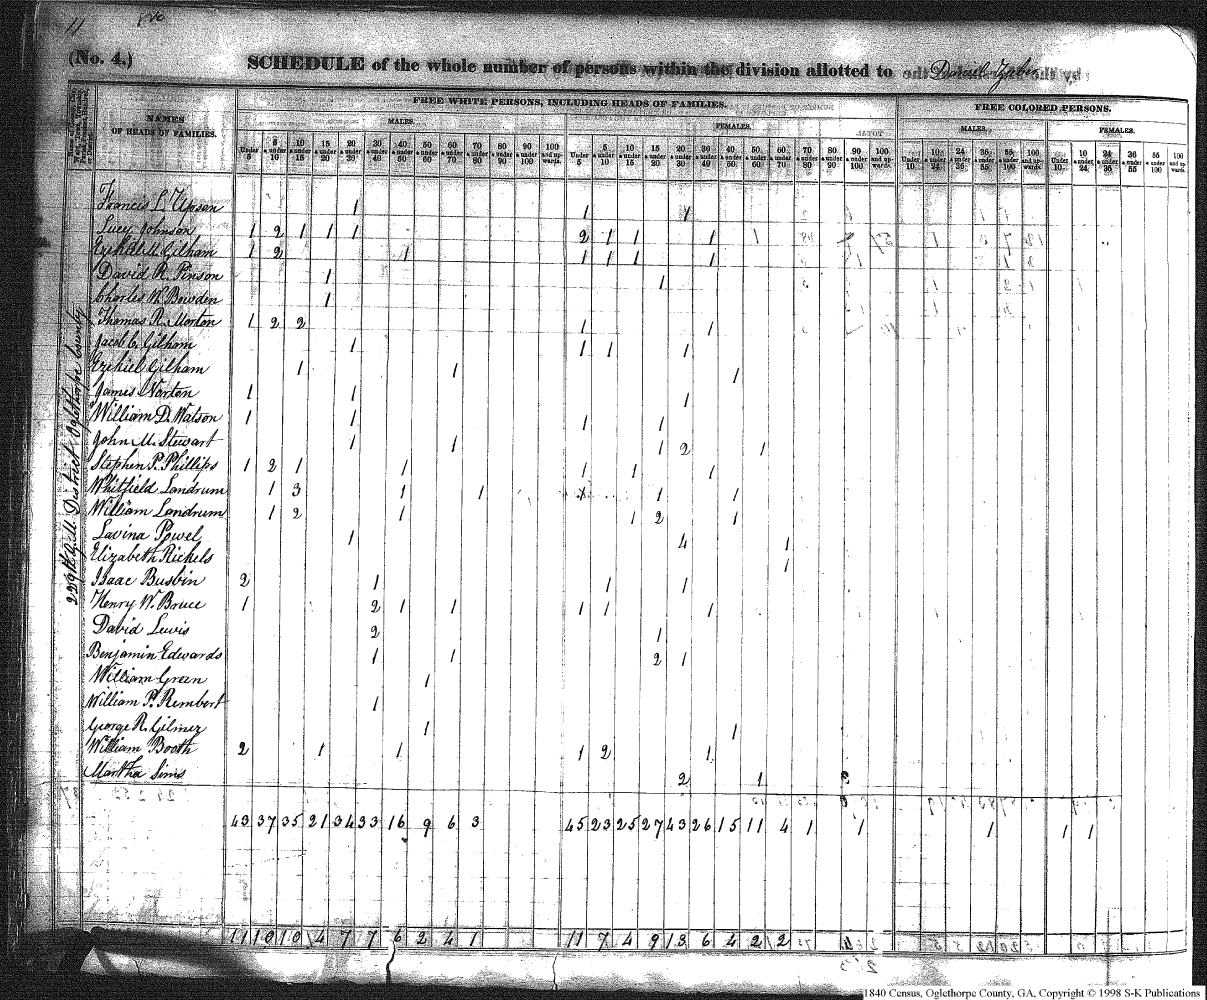 11
(No. 4.)
SCHEDULE of the whole number of persons within the division allotted to Daniel
NAMES OF HEADS OF FAMILIES.
FREE WHITE PERSONS, INCLUDING HEADS OF FAMILIES.
FREE COLORED PERSONS.
MALES. FEMALES. MALES. FEMALES.
Under 5 5 & under 10 10 & under 15 15 & under 20 20 & under 30 30 & under 40 40 & under 50 50 & under 60 60 & under 70 70 & under 80 80 & under 90 90 & under 100 100 and upwards. Under 5 5 & under 10 10 & under 15 15 & under 20 20 & under 30 30 & under 40 40 & under 50 50 & under 60 60 & under 70 70 & under 80 80 & under 90 90 & under 100 100 and upwards. Under 10 10 & under 24 24 & under 36 36 & under 55 55 & under 100 100 and upwards. Under 10 10 & under 24 24 & under 36 36 55 55 & under 100 100 and upwards.
229th G.M. District Oglethorpe County
Francis L. Upson 1 1 1
Lucy Johnson 1 2 1 1 1 2 1 1 1 1
Ezekiel M. Gilham 1 2 1 1 1 1 1
David R. Pinson 1 1
Charles W. Bowden 1
Thomas R. Morton 1 2 2 1 1
Jacob C. Gilham 1 1 1 1
Ezekiel Gilham 1 1 1
James Norton 1 1 1
William D. Watson 1 1 1 1
John M. Stewart 1 1 1 2 1
Stephen P. Phillips 1 2 1 1 1 1 1
Whitfield Landrum 1 3 1 1 1 1
William Landrum 1 2 1 1 2 1
Lavina Powel 1 4 1
Elizabeth Rickels 1
Isaac Busbin 2 1 1 1
Henry W. Bruce 1 2 1 1 1 1 1
David Lewis 2 1
Benjamin Edwards 1 1 2 1
William Green 1
William P. Rembert 1
George R. Gilmer 1 1
William Booth 2 1 1 1 2 1
Martha Sims 2 1
43 37 35 21 34 33 16 9 6 3 45 23 25 27 43 26 15 11 4 1 1 1 1 1
11 10 10 4 7 7 6 2 4 1 11 7 4 9 13 6 4 2 2
1840 Census, Oglethorpe County, GA, Copyright © 1998 S-K Publications